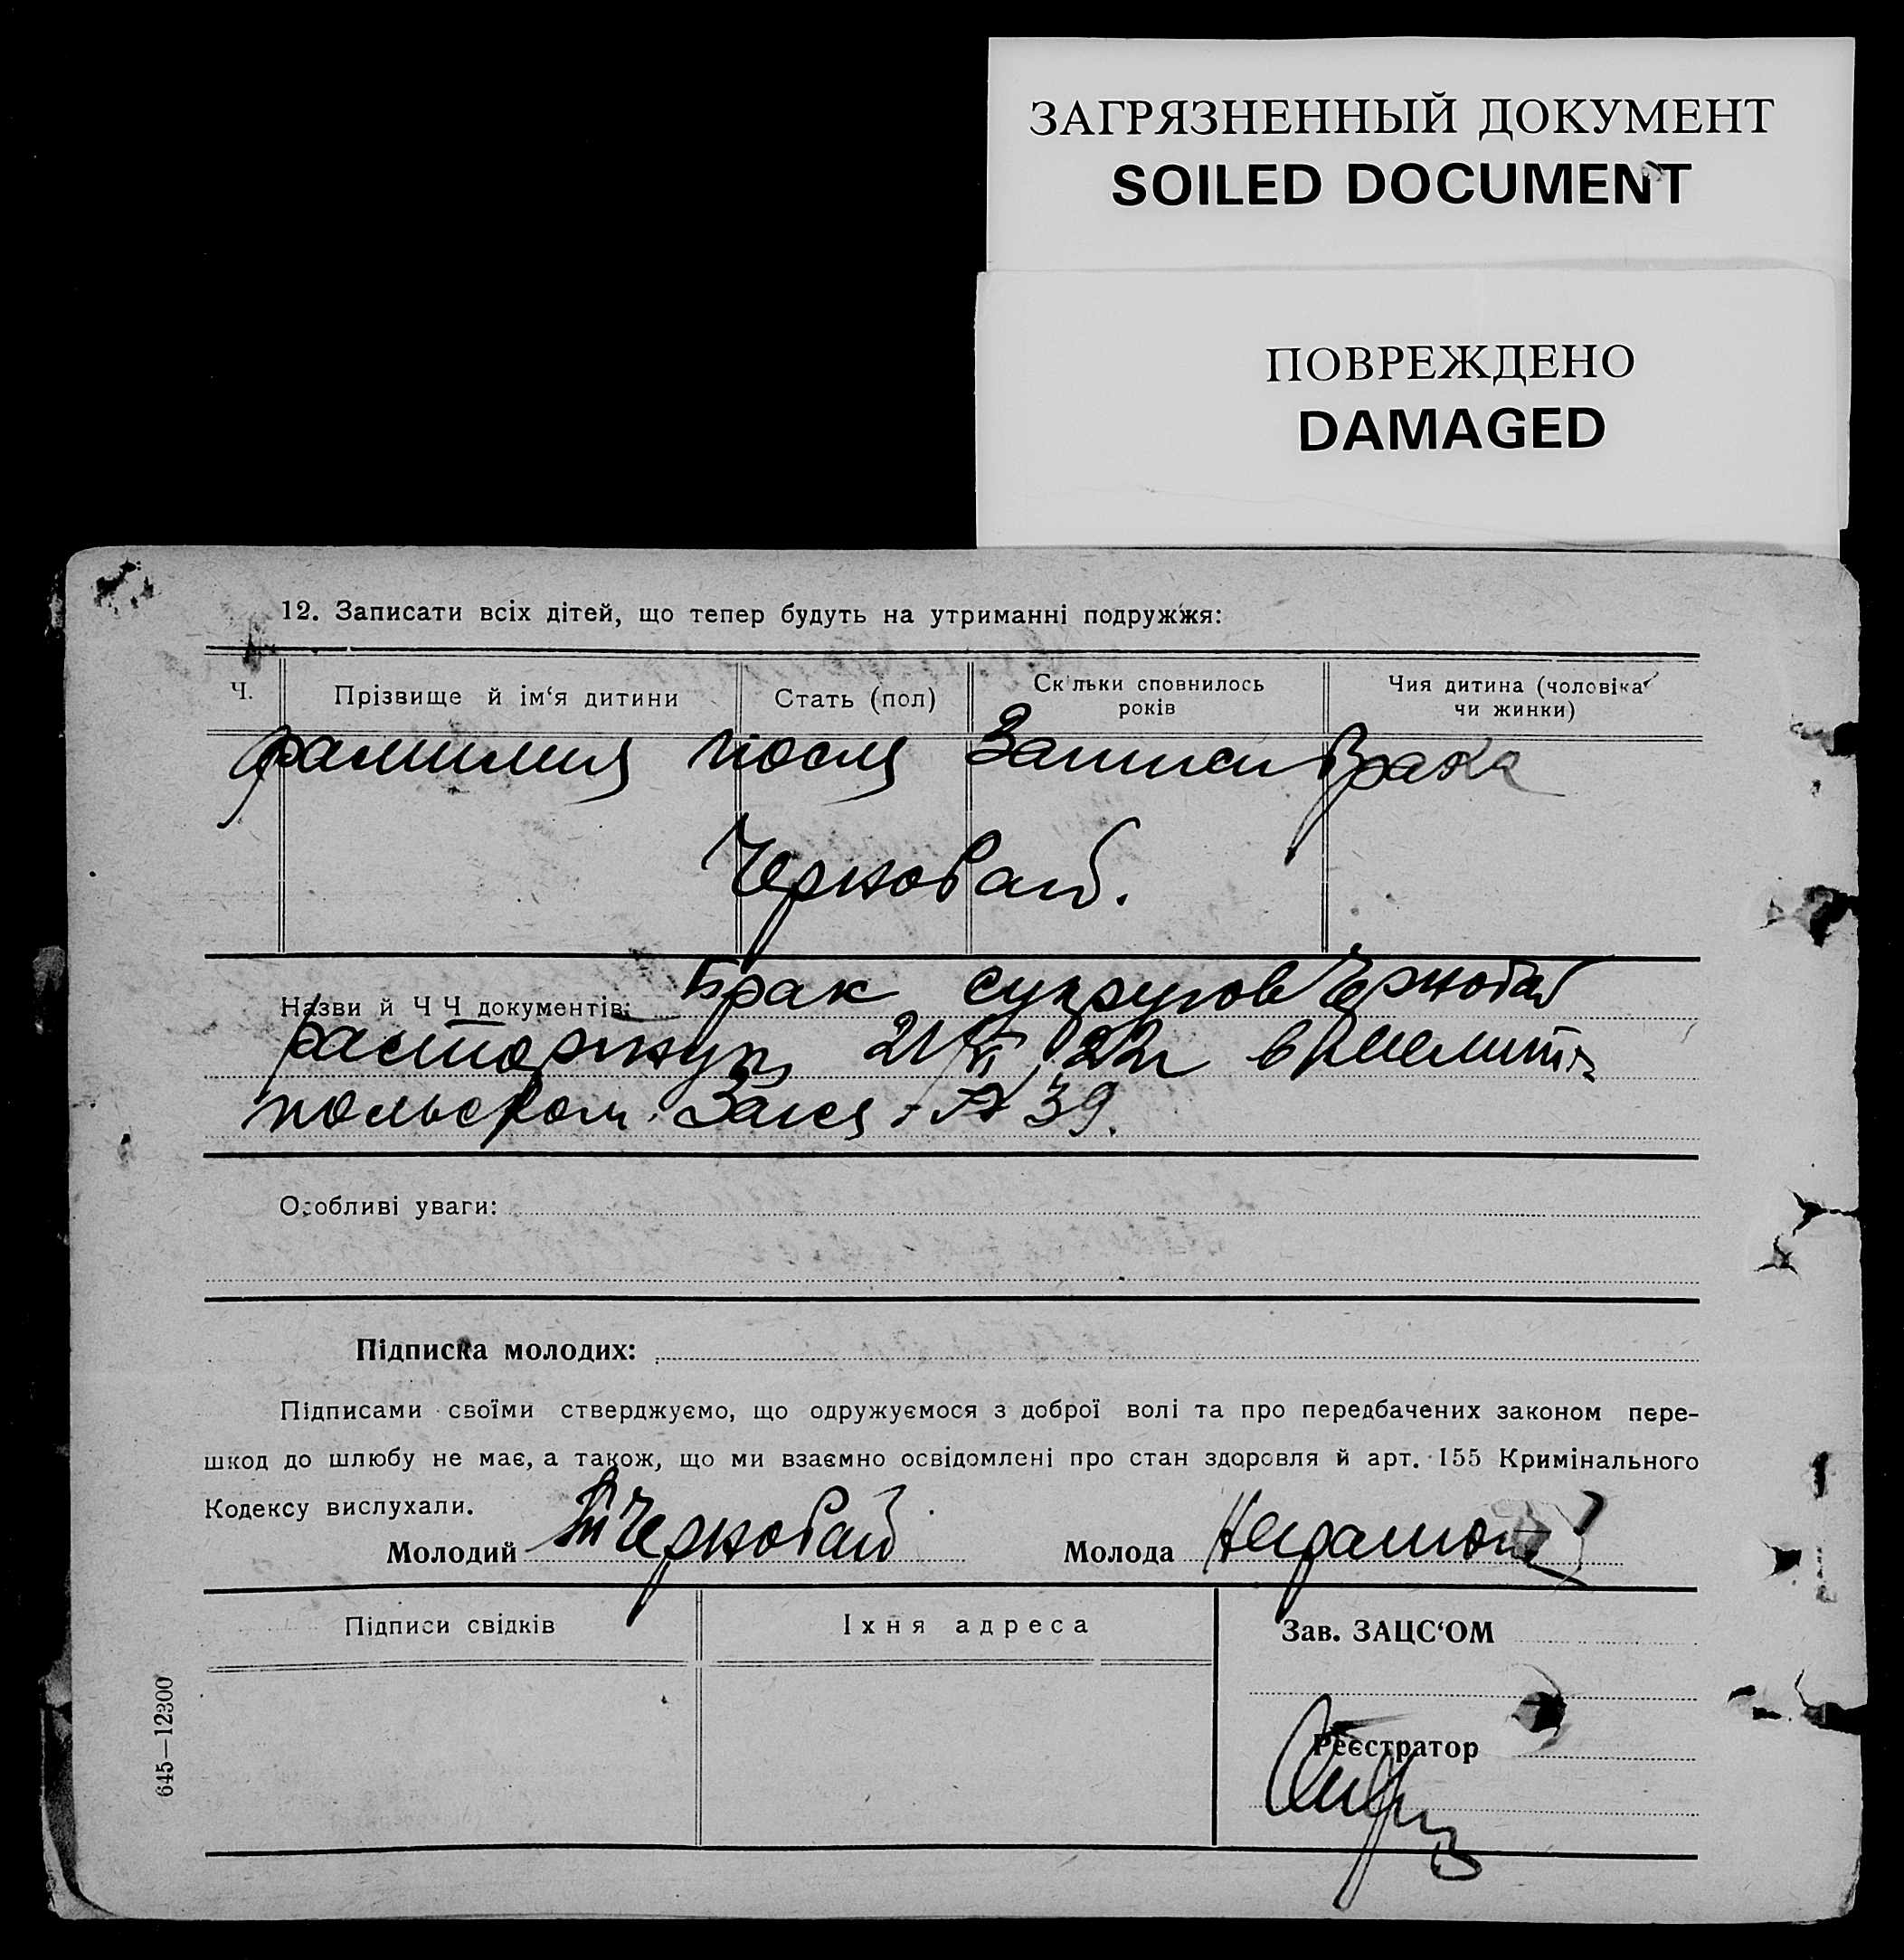 ЗАГРЯЗНЕННЫЙ ДОКУМЕНТ
SOILED DOCUMENT
ПОВРЕЖДЕНО
DAMAGED
12. Записати всіх дітей, що тепер будуть на утриманні подружжя:
Ч.
Прізвище й ім‘я дитини
Стать (пол)
Скільки сповнилось
років
Чия дитина (чоловіка
чи жинки)
фамилия после Записи Брака
Черновай.
Назви й Ч Ч документів: Брак супругов Черновай
расторжнут 21 в Мелито
польском Загсе 39.
Особливі уваги:
Підписка молодих:
Підписами своїми стверджуємо, що одружуємося з доброї волі та про передбачених законом пере-
шкод до шлюбу не має, а також, що ми взаємно освідомлені про стан здоровля й арт. 155 Кримінального
Кодексу вислухали.
Молодий Черновай
Молода
Підписи свідків
Їхня адреса
Зав. ЗАЦС‘ОМ
Реєстратор
645—12300